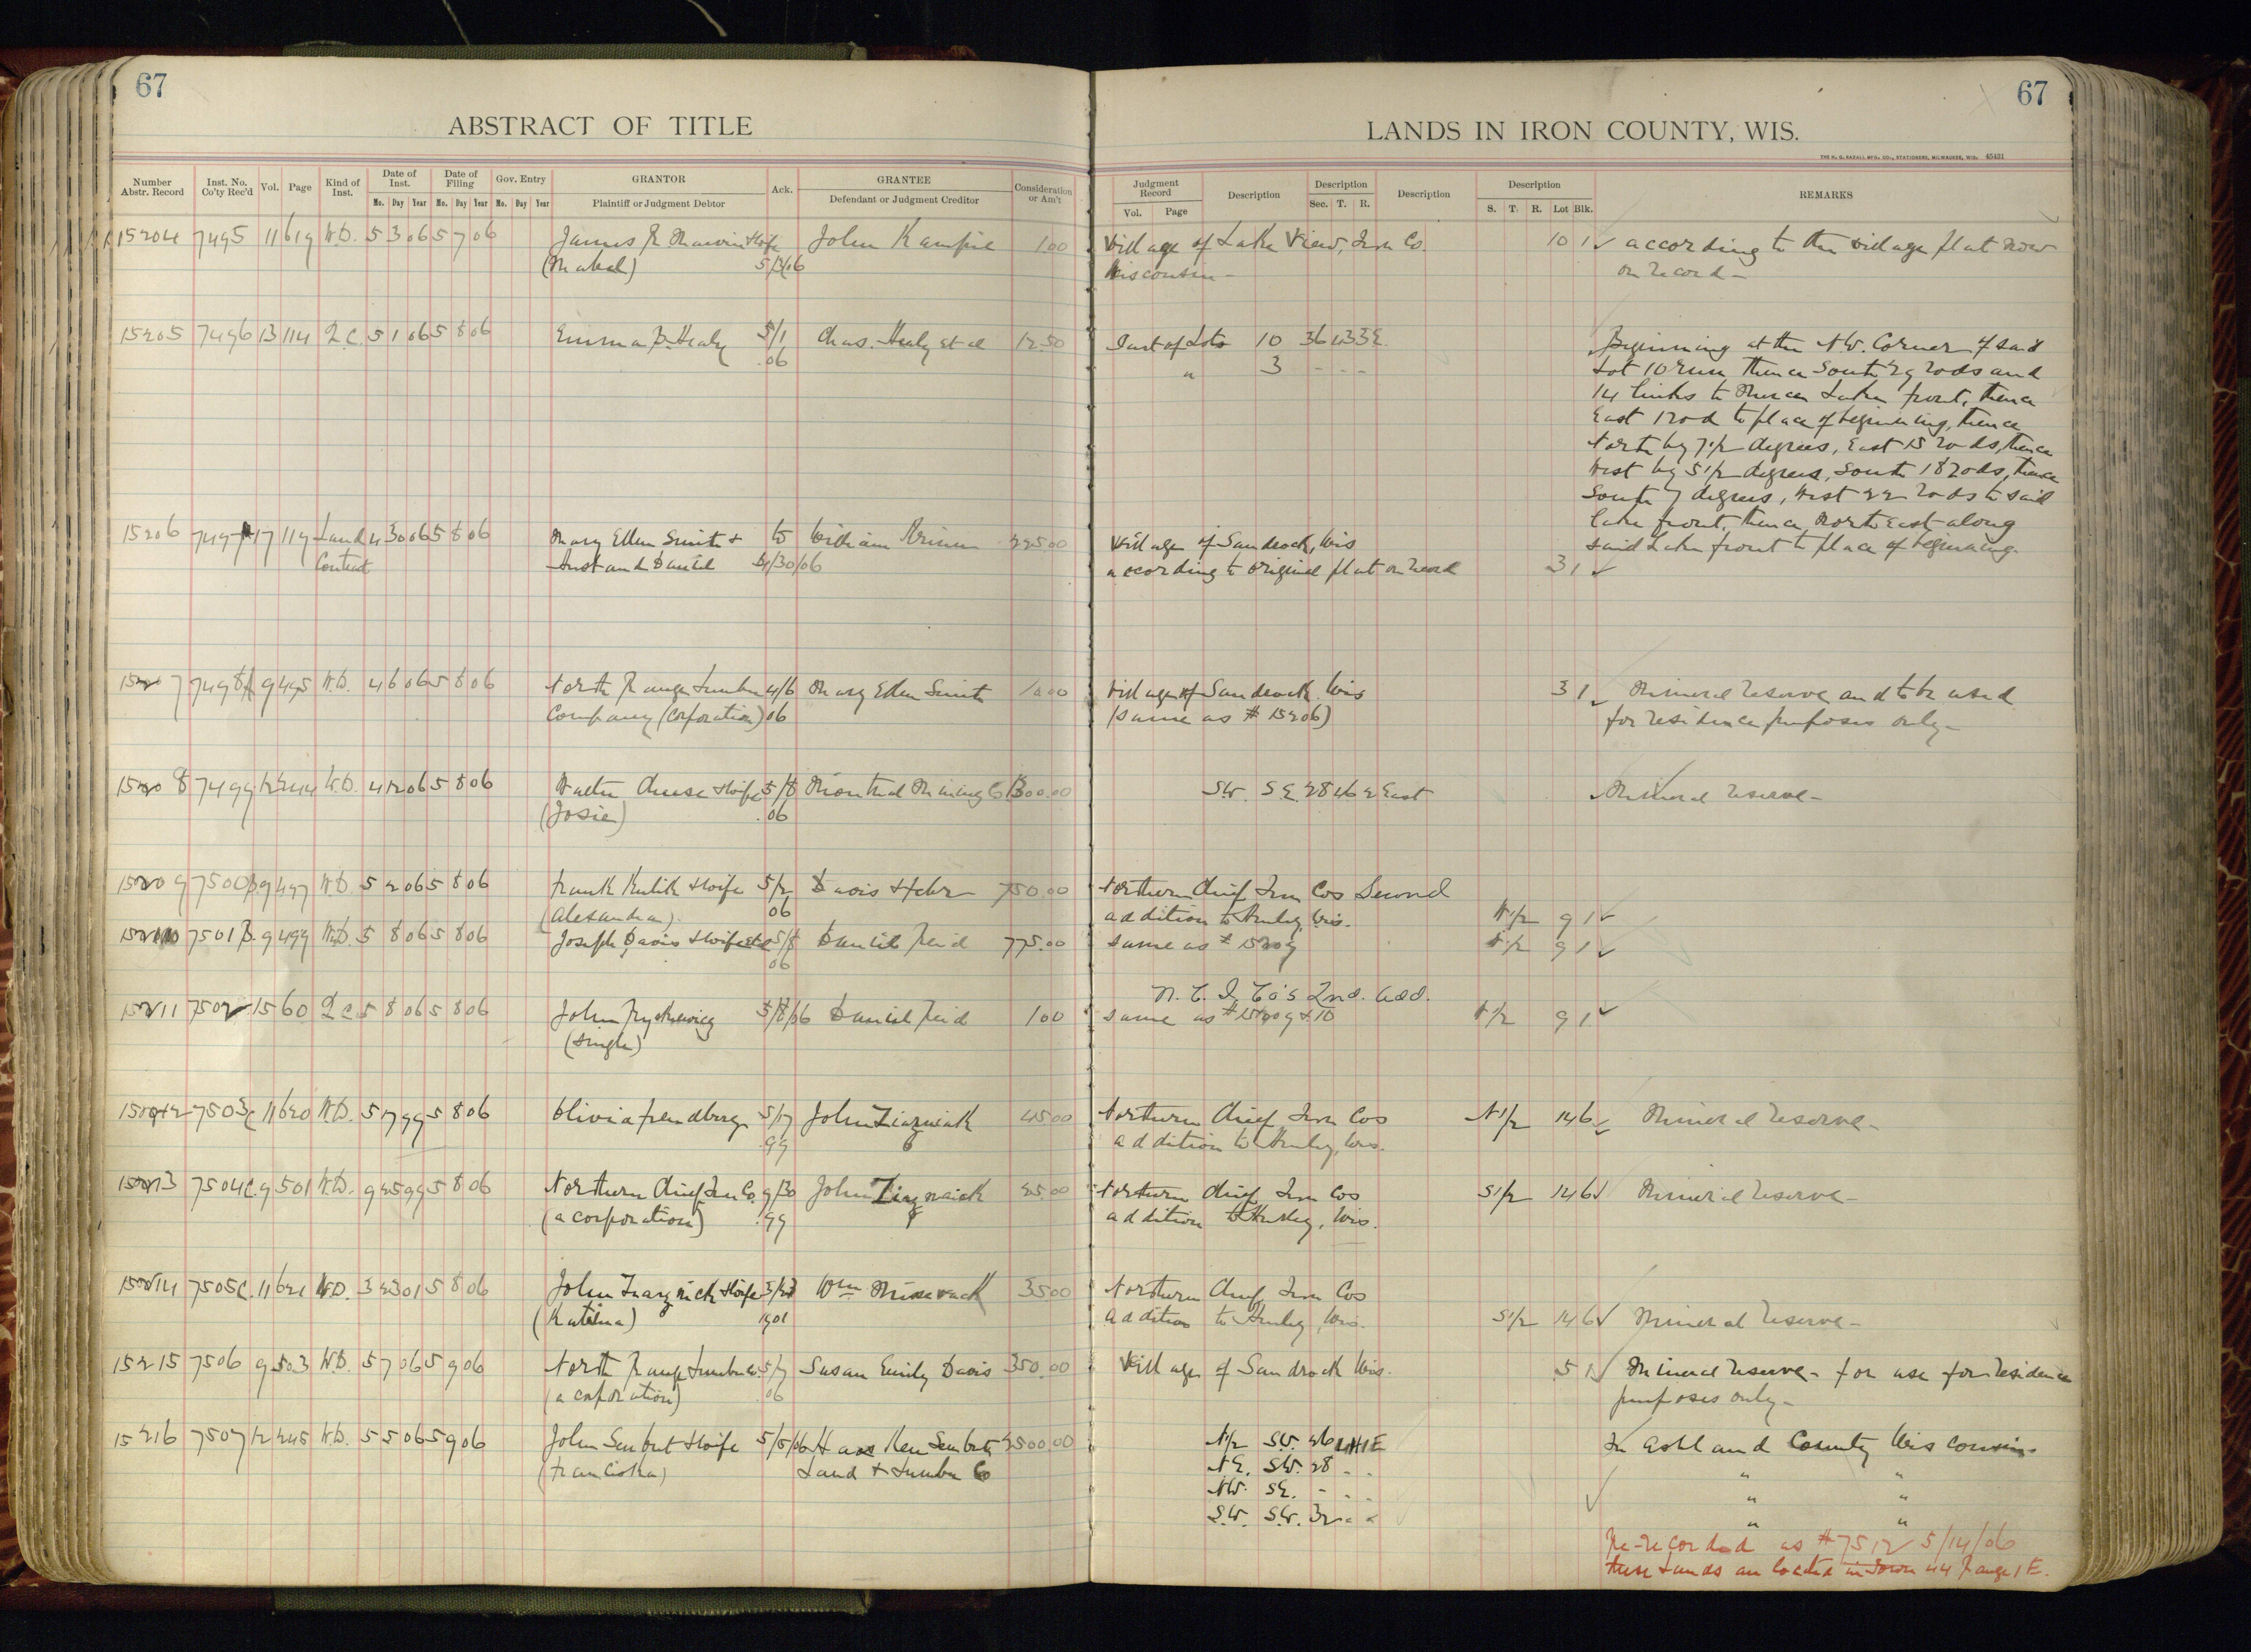 67
67
ABSTRACT OF TITLE
LANDS IN IRON COUNTY, WIS.
THE H. G. RAZALL MFG. CO., STATIONERS, MILWAUKEE, WIS. 45431
Number Abstr. Record Inst. No. Co'ty Rec'd Vol. Page Kind of Inst. Date of Inst. Date of Filing Gov. Entry GRANTOR Ack. GRANTEE Consideration or Am't
Mo. Day Year Mo. Day Year Mo. Day Year Plaintiff or Judgment Debtor Defendant or Judgment Creditor
Judgment Record Description Description Description Description REMARKS
Vol. Page Sec. T. R. S. T. R. Lot Blk.
15204 7495 11 619 W.D. 5 3 06 5 7 06 James R. Marvin & wife John 1 00 Village of Lake View, Iron Co. 10 1 according to the village plat now
(Mabel) 5/3/06 Wisconsin - on record -
15205 7496 13 114 Q.C. 5 1 06 5 8 06 Emma B. Healy 5/1 Chas. Healy et al 12 50 Part of Lots 10 36 43 3E Beginning at the N.W. Corner of said
06 " 3 - - - Lot 10 run thence South 29 rods and
14 links to Mercer Lake front, thence
East 1 rod to place of beginning, thence
North by 7 1/2 degrees, East 15 rods, thence
West by 5 1/2 degrees, South 18 rods, thence
South 7 degrees, West 22 rods to said
lake front, thence North East along
said Lake front to place of beginning.
15206 7497 17 119 Land 4 30 06 5 8 06 Mary Ellen Smith & to William 225 00 Village of Sandrock, Wis
Contract husband Daniel 4/30/06 according to original plat on record 3 1
15207 7498 9 495 W.D. 4 6 06 5 8 06 North Range Lumber 4/6 Mary Ellen Smith Village of Sandrock Wis 3 1 Mineral reserve and to be used
Company (corporation) 06 (same as # 15206) for residence purposes only -
15208 7499 12 244 W.D. 4 12 06 5 8 06 Walter Chase & wife 5/8 Montreal Mining Co 1300.00 SW. SE. 28 46 2 East Mineral reserve -
(Josie) .06
15209 7500 9 497 W.D. 5 2 06 5 8 06 Frank Kulik & wife 5/2 Davis & Fehr 750.00 Northern Chief Iron Cos Second
(Alexandra). 06 addition to Hurley, Wis. W 1/2 9 1
15210 7501 9 499 W.D. 5 8 06 5 8 06 Joseph Davis & wife et al 5/8 Daniel Reid 775.00 same as # 15209 W 1/2 9 1
06
N. C. I. Co's 2nd. add.
15211 7502 15 60 Q.C. 5 8 06 5 8 06 John 5/8/06 Daniel Reid 1 00 same as # 15209 & 10 W 1/2 9 1
(single)
15212 7503 11 620 W.D. 5 17 99 5 8 06 Olivia 5/17 John 45 00 Northern Chief Iron Cos N 1/2 14 6 Mineral reserve -
.99 addition to Hurley, Wis.
15213 7504 9 501 W.D. 9 25 99 5 8 06 Northern Chief Iron Co. 9/30 John 25.00 Northern Chief Iron Cos S 1/2 14 6 Mineral reserve -
(a corporation) .99 addition to Hurley, Wis.
15214 7505 11 621 W.D. 3 23 01 5 8 06 John & wife 3/23 Wm 35 00 Northern Chief Iron Cos
1901 addition to Hurley, Wis. S 1/2 14 6 Mineral reserve -
15215 7506 9 503 W.D. 5 7 06 5 9 06 North Range Lumber Co. 5/7 Susan Emily Davis 350.00 Village of Sandrock Wis. 5 1 Mineral reserve - for use for residence
(a corporation) .06 purposes only -
15216 7507 12 245 W.D. 5 5 06 5 9 06 John & wife 5/5/06 2500.00 N/2 SW. 26 1E In Ashland County Wisconsin
(Franciska) Land & Lumber Co NE. SW. 28 - - " "
NW. SE. - - - " "
S.W. S.W. 32 - - " "
Re-recorded as # 7512 5/14/06
these Lands are located in Town 44 Range 1 E.